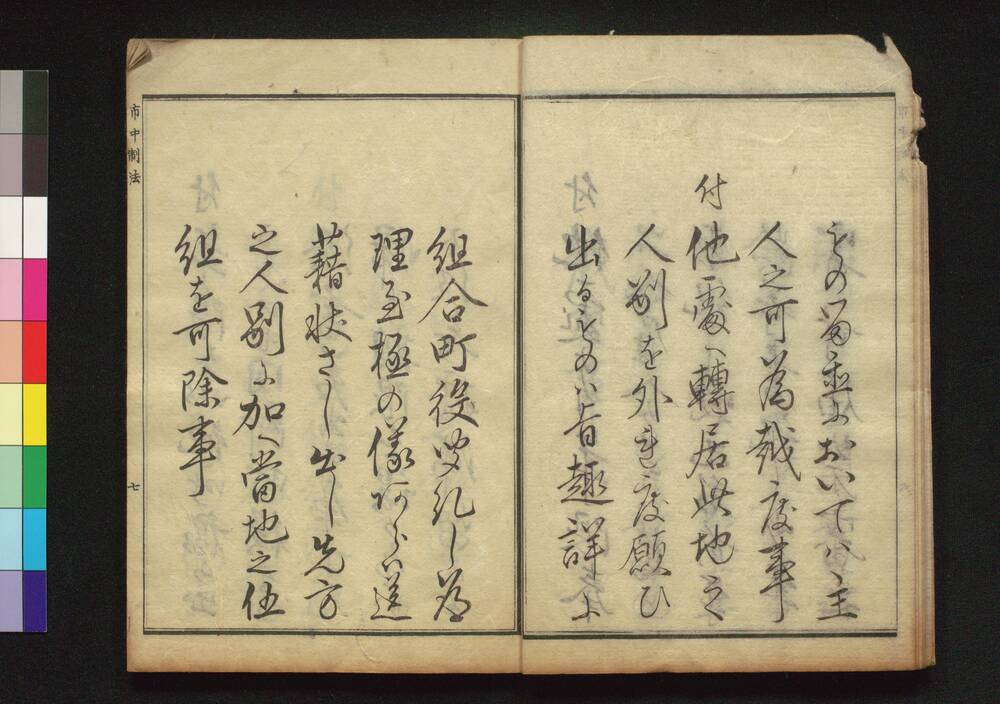 ものの留主ニおいてハ主
人之可為越度事
付
他處へ轉居此地之
人別を外れ度願ひ
出るものハ旨趣詳ニ
組合町役吟糺し為
理至極の儀アラハ送
藉状さし出し先方
之人別ニ加へ當地之伍
組を可除事
市中制法
七